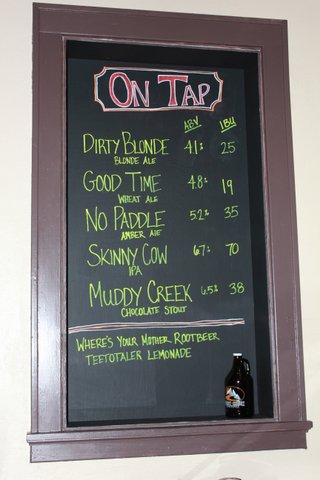 ON TAP
ABV IBU
DIRTY BLONDE 4.1% 25
BLONDE ALE
GOOD TIME 4.8% 19
WHEAT ALE
NO PADDLE 5.2% 35
AMBER ALE
SKINNY COW 6.7% 70
IPA
MUDDY CREEK 6.5% 38
CHOCOLATE STOUT
WHERE'S YOUR MOTHER ROOTBEER
TEETOTALER LEMONADE